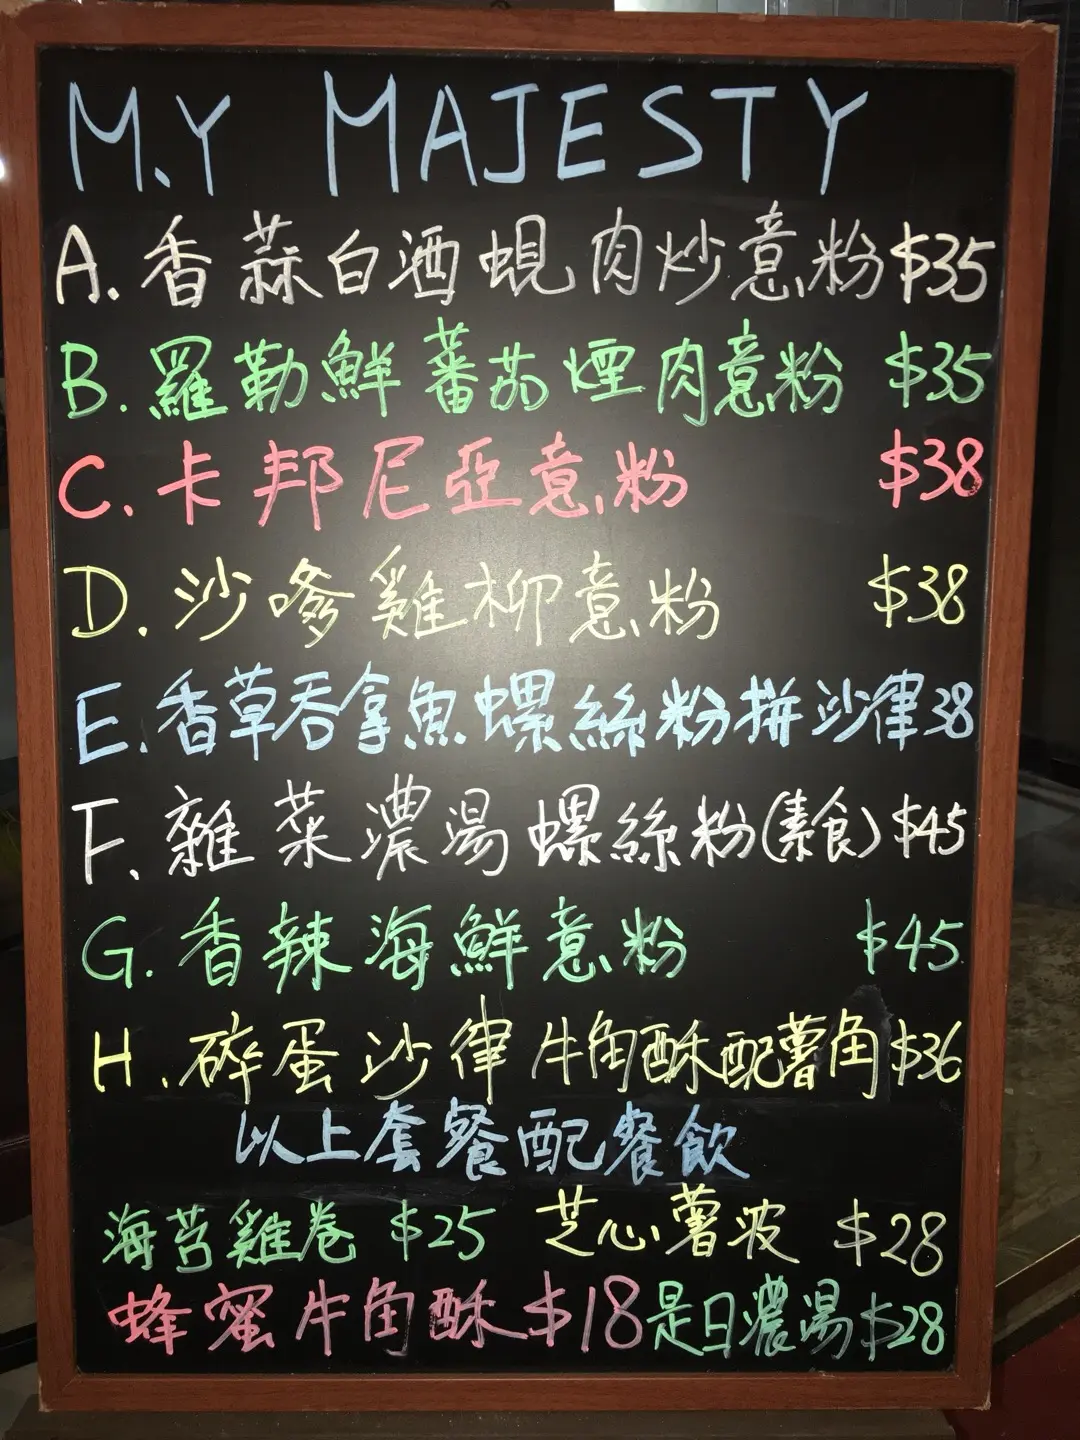 M.Y MAJESTY
A. 香蒜白酒蜆肉炒意粉 $35
B. 羅勒鮮蕃茄煙肉意粉 $35
C. 卡邦尼亞意粉 $38
D. 沙嗲雞柳意粉 $38
E. 香草吞拿魚螺絲粉拼沙律 38
F. 雜菜濃湯螺絲粉(素食) $45
G. 香辣海鮮意粉 $45
H. 碎蛋沙律牛角酥配薯角 $36
以上套餐配餐飲
海苔雞卷 $25 芝心薯波 $28
蜂蜜牛角酥 $18 是日濃湯 $28